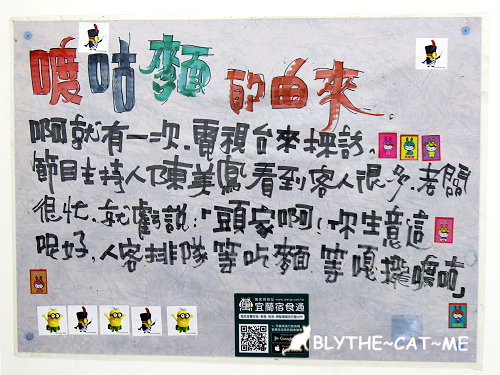 嚒咕麵 的由來
啊就有一次,電視台來採訪,
節目主持人「陳美鳳」看到客人很多,老闆
很忙,就虧說:「頭家啊!你生意這
呢好,人客排隊等吃麵等嘎攏嚒咕」
宜蘭宿食通
BLYTHE~CAT~ME